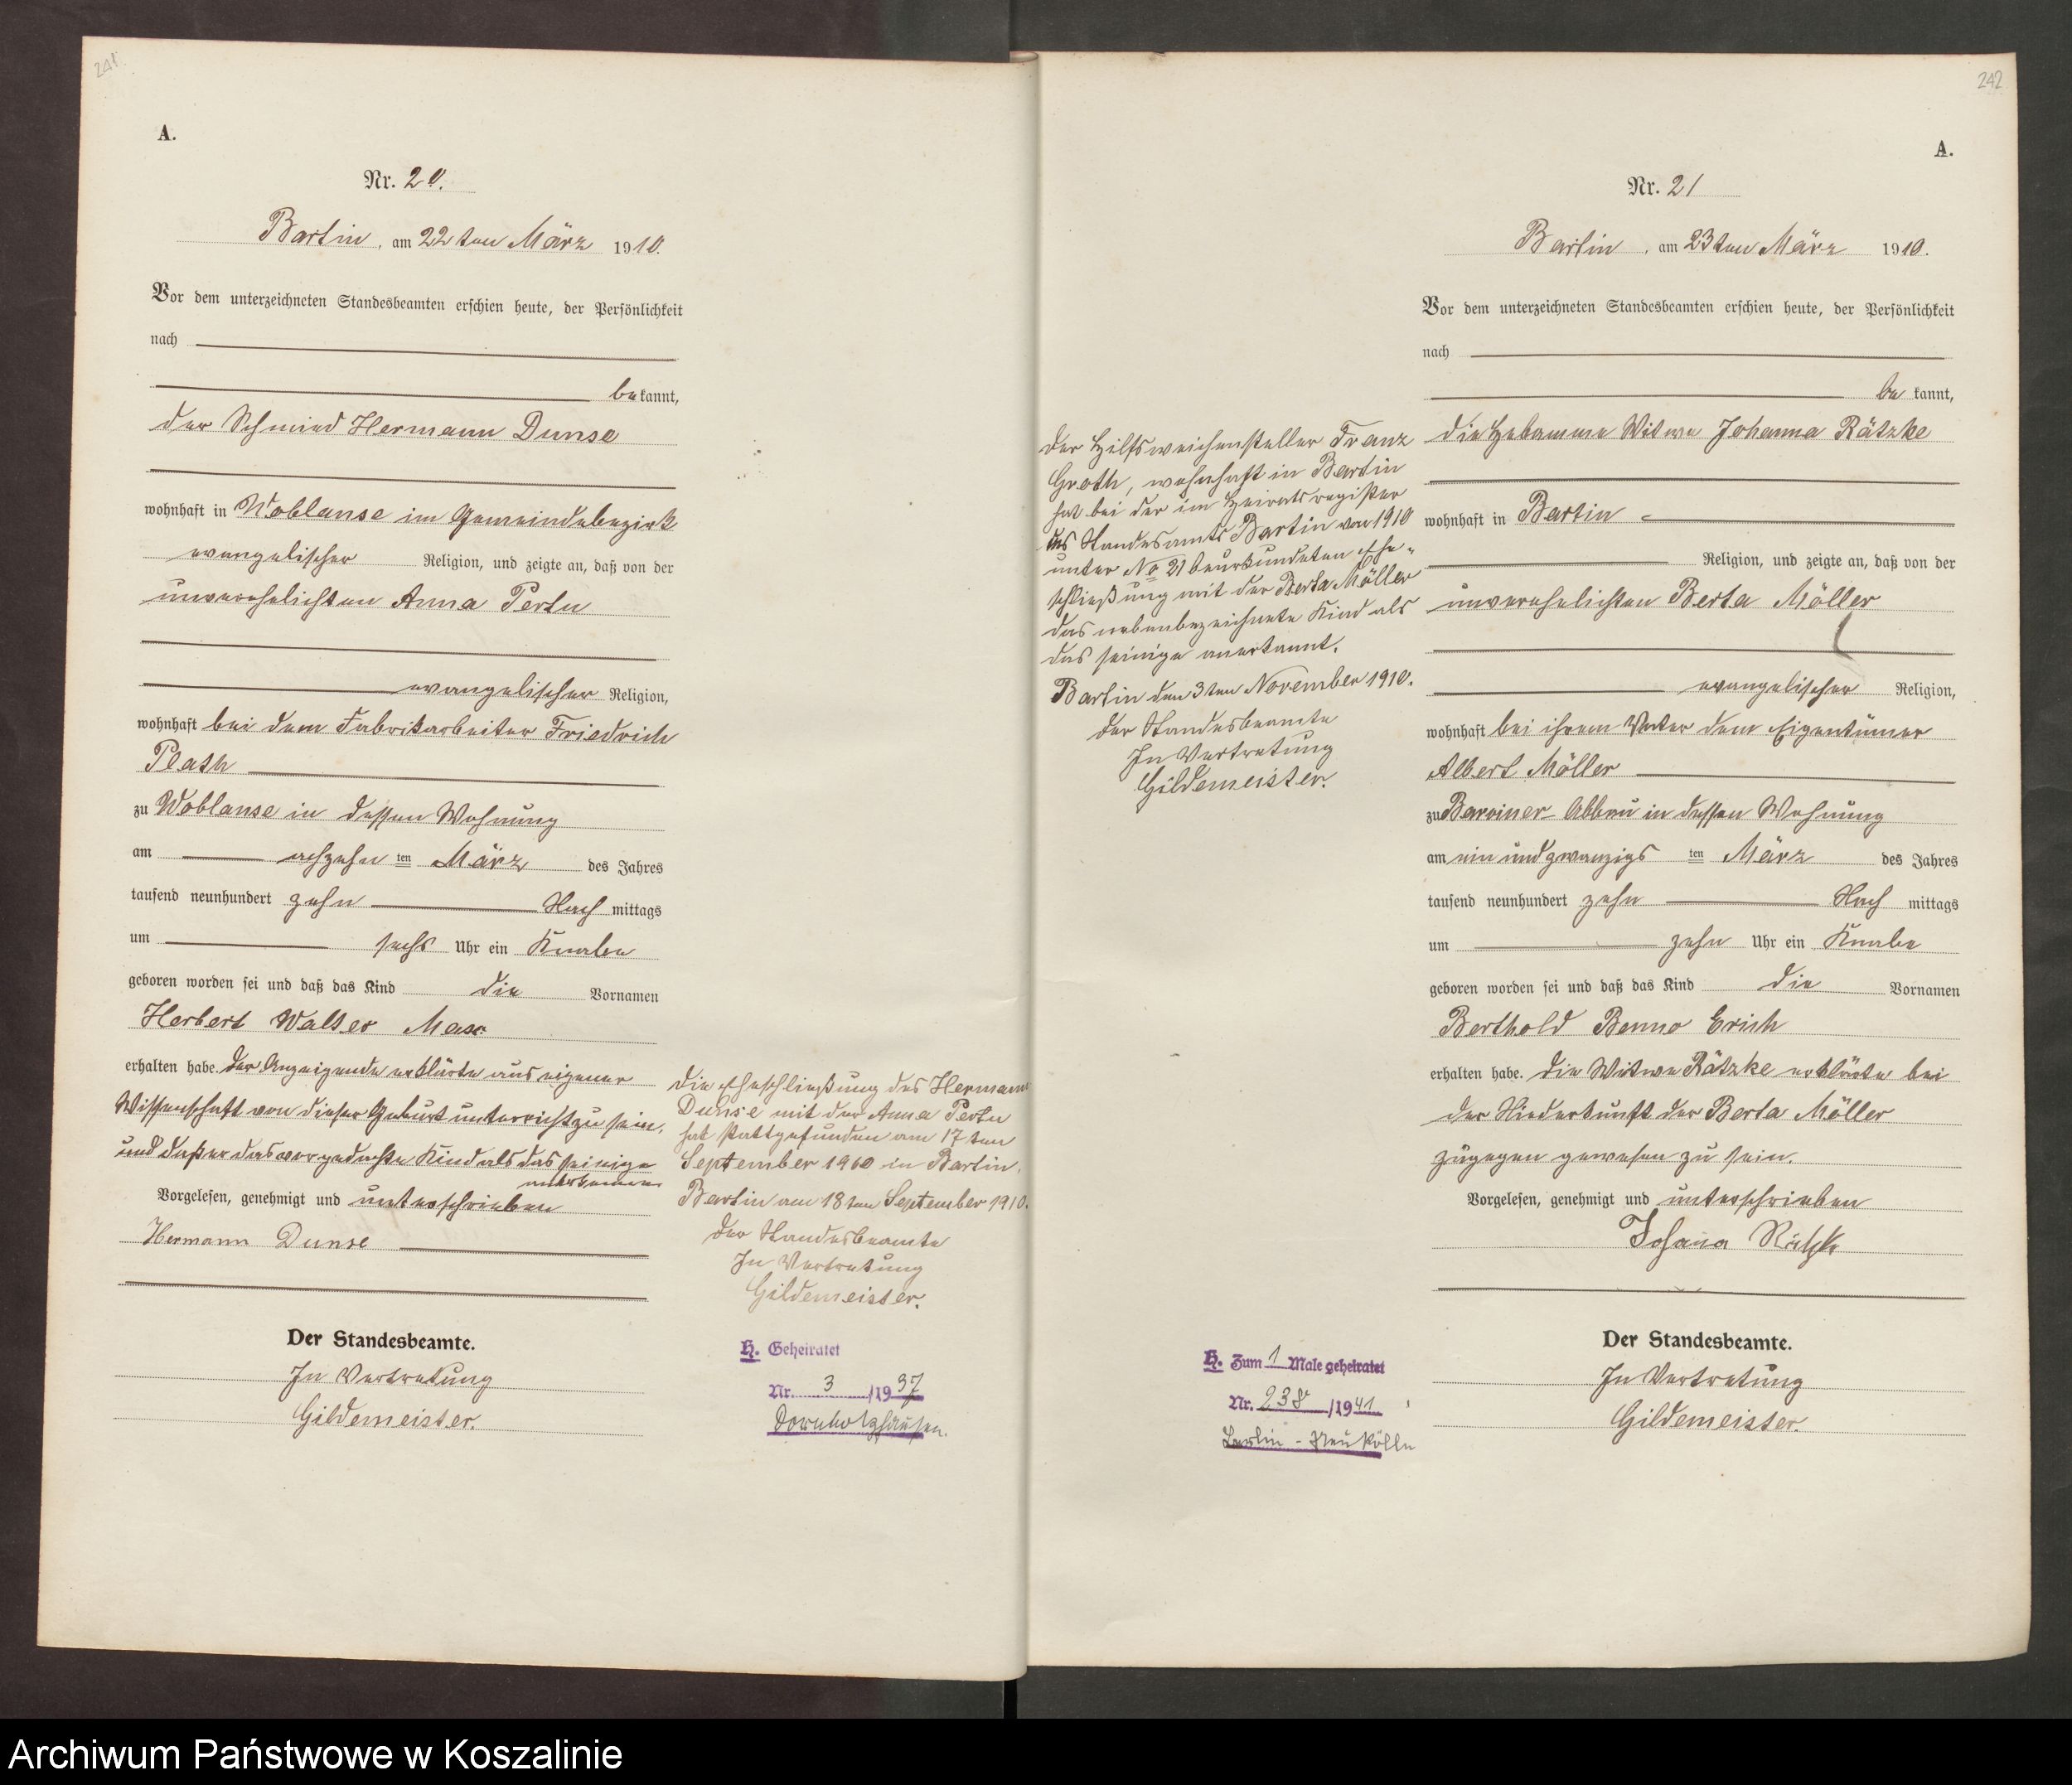 241
A.
Nr. 20.
Bartin, am 22ten März 1910.
Vor dem unterzeichneten Standesbeamten erschien heute, der Persönlichkeit
nach
bekannt,
der Schmied Hermann Dunse
wohnhaft in Woblanse im Gemeindebezirk
evangelischer Religion, und zeigte an, daß von der
unverehelichten Anna Perlu
evangelischer Religion,
wohnhaft bei dem Fabrikarbeiter Friedrich
Plath
zu Woblanse in dessen Wohnung
am achzehn ten März des Jahres
tausend neunhundert zehn Nach mittags
um sechs Uhr ein Knabe
geboren worden sei und daß das Kind die Vornamen
Herbert Walter Max
erhalten habe. Der Anzeigende erklärte aus eigener
Wissenschaft von dieser Geburt unterricht zu sein,
und daß er das vorgedachte Kind als das seinige
anerkenne
Vorgelesen, genehmigt und unterschrieben
Hermann Dunse
Der Standesbeamte.
In Vertretung
Gildemeister.
Die Eheschließung des Hermann
Dunse mit der Anna
hat stattgefunden am 17ten
September 1910 in Bartin.
Bartin am 18ten September 1910.
Der Standesbeamte
In Vertretung
Gildemeister.
H. Geheiratet
Nr. 3 /1937
Dornholzhausen.
242
A.
Nr. 21
Bartin, am 23ten März 1910.
Vor dem unterzeichneten Standesbeamten erschien heute, der Persönlichkeit
nach
be kannt,
die Hebamme Witwe Johanna Rätzke
wohnhaft in Bartin
Religion, und zeigte an, daß von der
unverehelichten Berta Möller
evangelischer Religion,
wohnhaft bei ihrem Vater dem Eigentümer
Albert Möller
zu Barviner Abbau in dessen Wohnung
am ein und zwanzigs ten März des Jahres
tausend neunhundert zehn Nach mittags
um zehn Uhr ein Knabe
geboren worden sei und daß das Kind die Vornamen
Berthold Benno Erich
erhalten habe. Die Witwe Rätzke erklärte bei
der Niederkunft der Berta Möller
zugegen gewesen zu sein.
Vorgelesen, genehmigt und unterschrieben
Johanna Rätzke
Der Standesbeamte.
In Vertretung
Gildemeister.
Der Hilfsweichensteller Franz
Groth, wohnhaft in Bartin
hat bei der im Heiratsregister
des Standesamts Bartin von 1910
unter No 21 beurkundeten Ehe-
schließung mit der Berta Möller
das nebenbezeichnete Kind als
das seinige anerkannt.
Bartin den 3ten November 1910.
Der Standesbeamte
In Vertretung
Gildemeister.
H. Zum 1 Male geheiratet
Nr. 238 /1941
Berlin-Neukölln
Archiwum Państwowe w Koszalinie